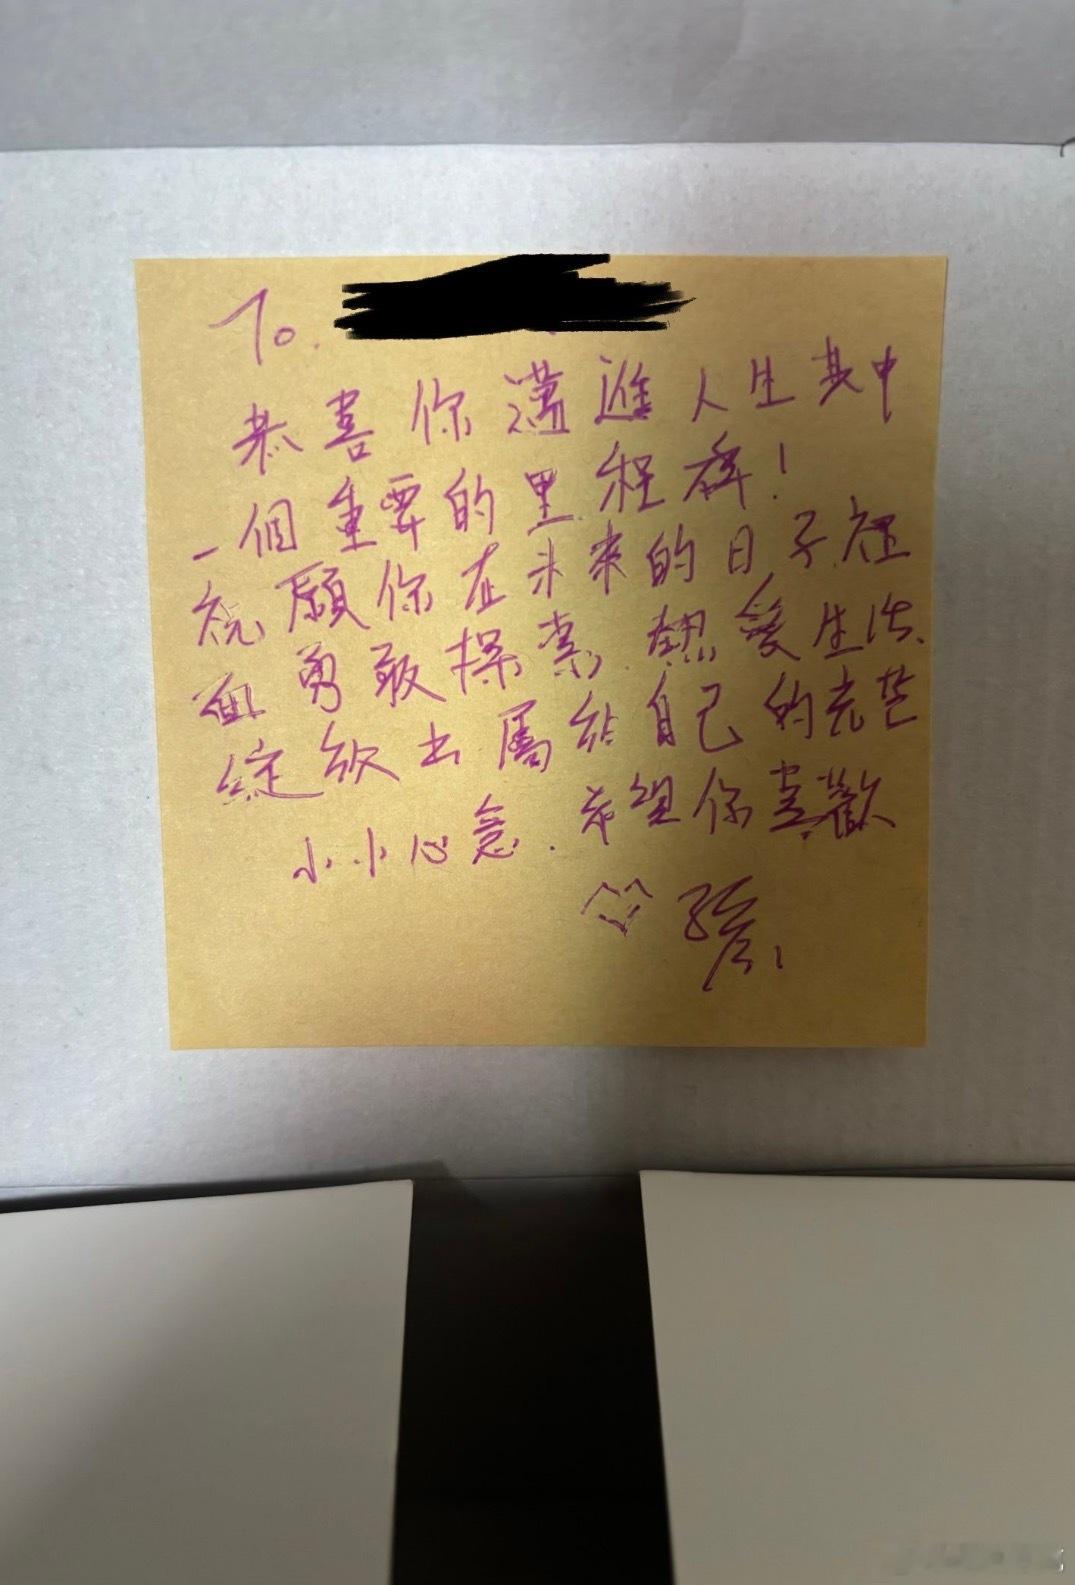 To.
恭喜你邁進人生其中
一個重要的里程碑！
祝願你在未來的日子裡
面勇敢探索．熱愛生活、
綻放出屬於自己的光芒
小小心意．希望你喜歡